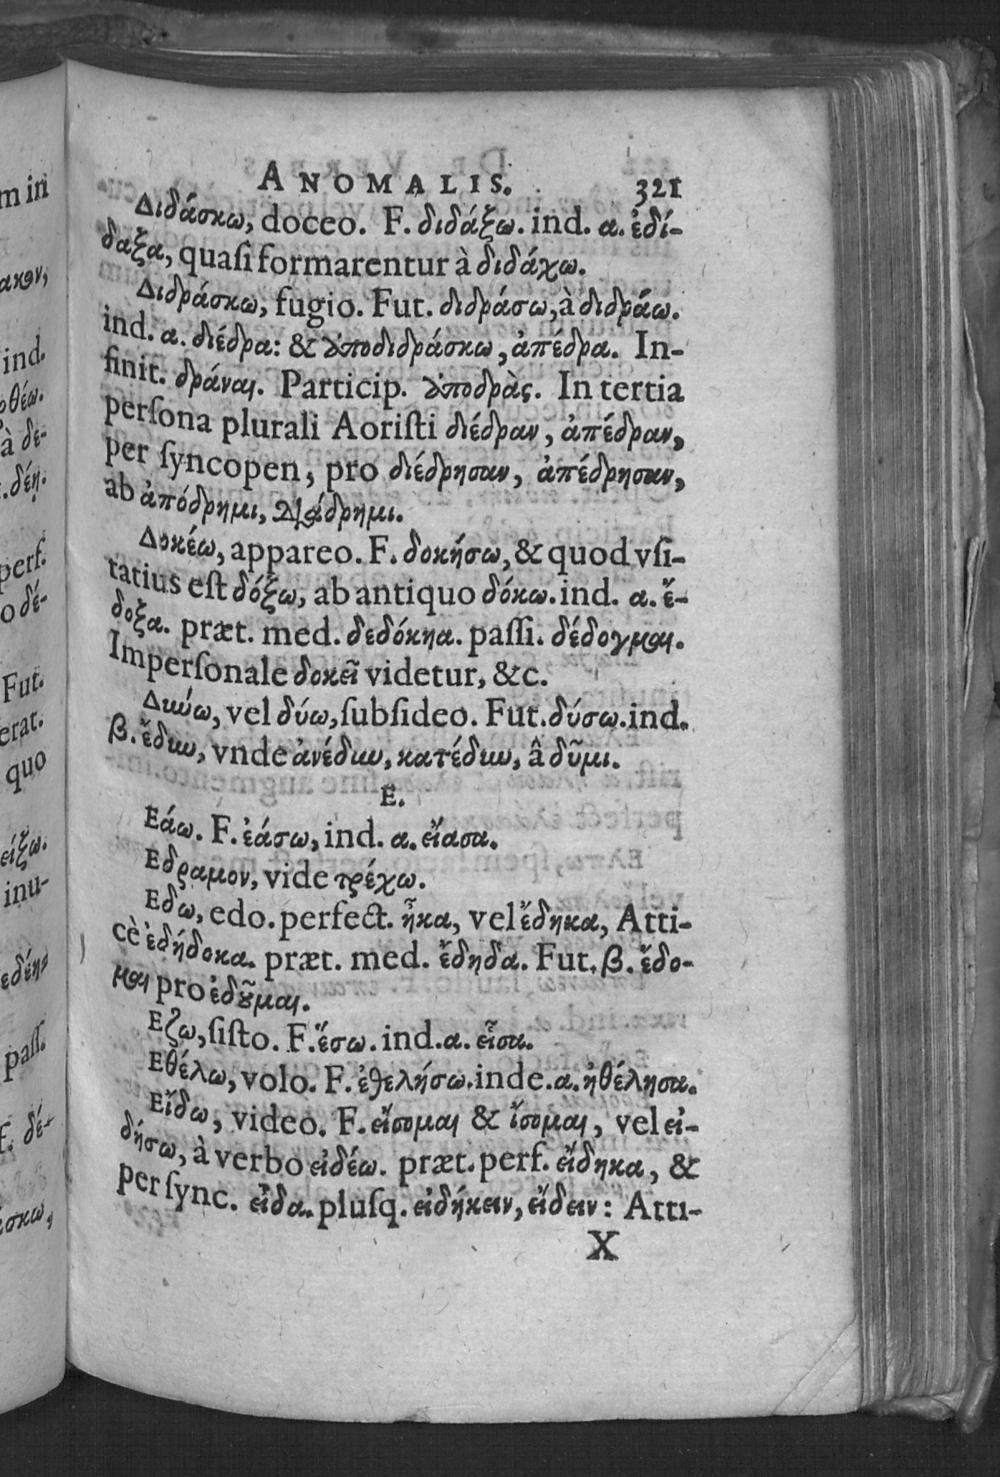 ANOMALIS. 321
Διδάσκω, doceo. F. διδάξω. ind. α. ἐδί-
δαξα, quaſi formarentur à διδάχω.
Διδράσκω, fugio. Fut. διδράσω, à διδράω.
ind. α. διέδρα: & ἀποδιδράσκω, ἀπέδρα. In-
finit. δράναι. Particip. ἀποδρὰς. In tertia
perſona plurali Aoriſti διέδραν, ἀπέδραν,
per ſyncopen, pro διέδρησαν, ἀπέδρησαν,
ab ἀπόδρημι, διάδρημι.
Δοκέω, appareo. F. δοκήσω, & quod vſi-
tatius eſt δόξω, ab antiquo δόκω. ind. α. ἔ-
δοξα. præt. med. δεδόκηα. paſſi. δέδογμαι.
Imperſonale δοκεῖ videtur, &c.
Δύω, vel δύω, ſubſideo. Fut. δύσω. ind.
β. ἔδυν, vnde ἀνέδυν, κατέδυν, â δῦμι.
E.
Εάω. F. ἐάσω, ind. α. εἴασα.
Εδραμον, vide τρέχω.
Εδω, edo. perfect. ἦκα, vel ἔδηκα, Atti-
cè ἐδήδοκα. præt. med. ἔδηδα. Fut. β. ἔδο-
μαι pro ἐδοῦμαι.
Εζω, ſiſto. F. ἕσω. ind. α. εἷσα.
Εθέλω, volo. F. ἐθελήσω. inde. α. ἠθέλησα.
Εἴδω, video. F. εἴσομαι & ἴσομαι, vel εἰ-
δήσω, à verbo εἰδέω. præt. perf. εἴδηκα, &
per ſync. εἶδα. pluſq. εἰδήκειν, εἴδειν: Atti-
X
m in
ind.
à δε-
perſ.
o δέ-
Fut.
erat.
quo
είξω.
inu-
paſſ.
f. δέ-